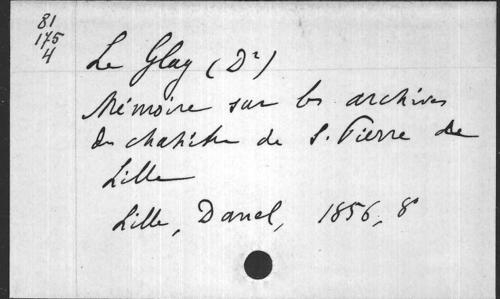 81
175
4
Le Glay (Dr)
Mémoire sur les archives
du chapitre de S. Pierre de
Lille
Lille, Danel, 1856, 8°